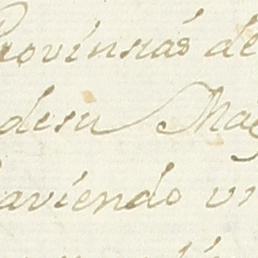 Provinsias de
desu Mag
haviendo vi